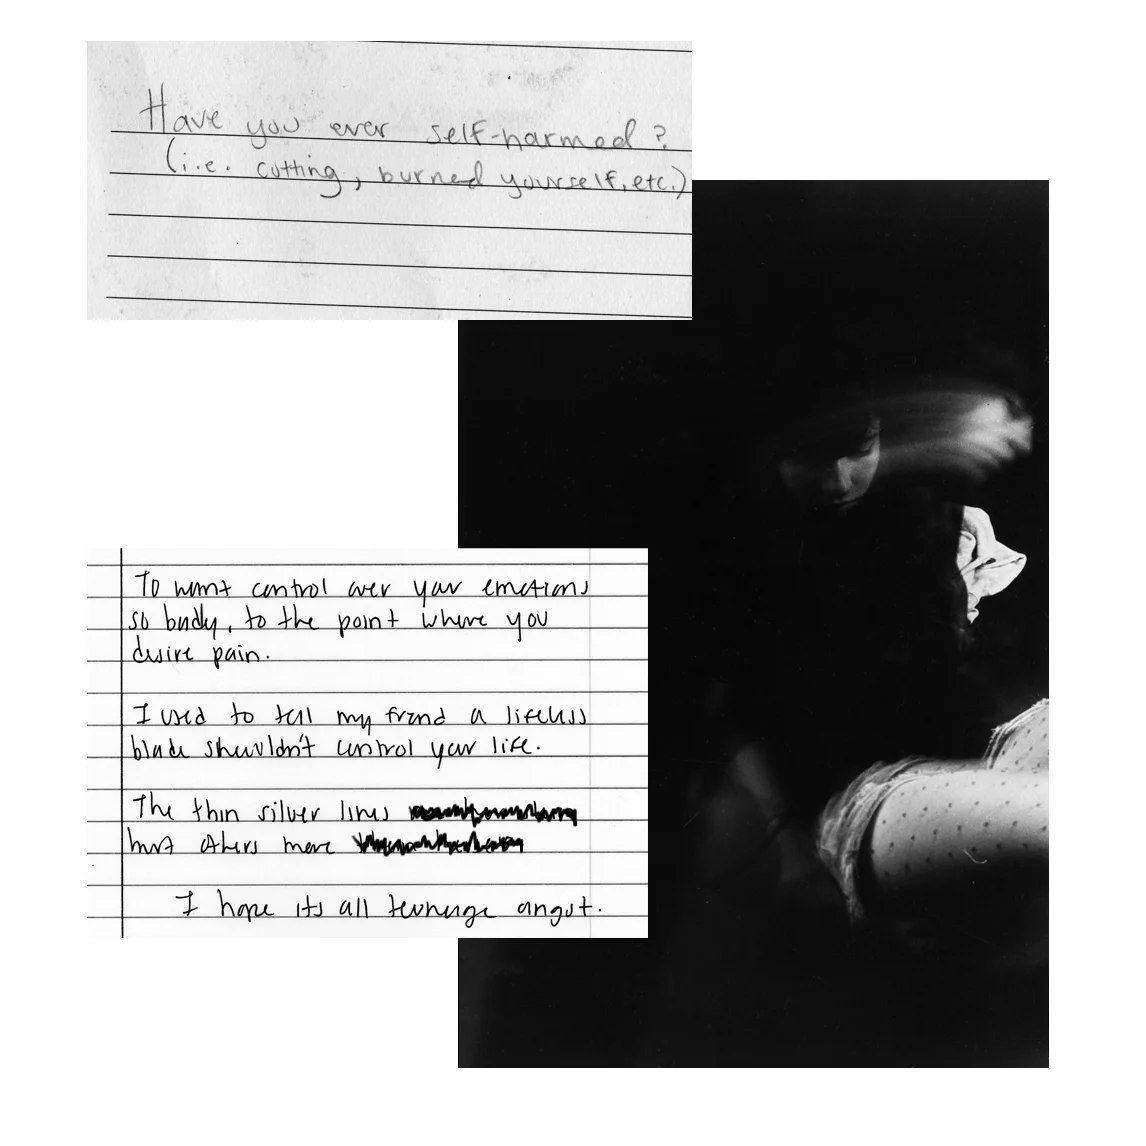 Have you ever self-harmed?
(i.e. cutting, burned yourself, etc.)
To want control over your emotions
so badly, to the point where you
desire pain.
I used to tell my friend a lifeless
blade shouldn't control your life.
The thin silver lines
hurt others more
I hope its all teenage angst.